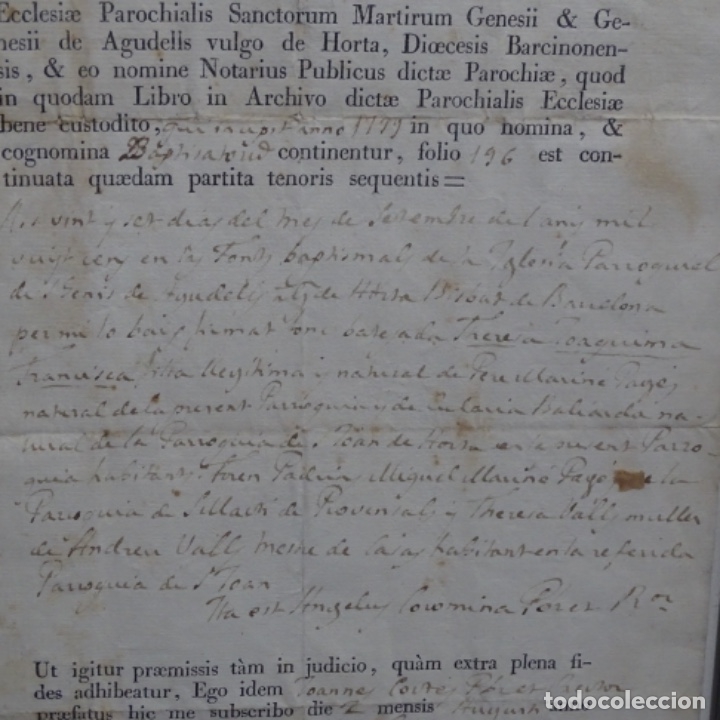 Ecclesiæ Parochialis Sanctorum Martirum Genesii & Ge-
nesii de Agudells vulgo de Horta, Diœcesis Barcinonen-
sis, & eo nomine Notarius Publicus dictæ Parochiæ, quod
in quodam Libro in Archivo dictæ Parochialis Ecclesiæ
bene custodito, anno 1799 in quo nomina, &
cognomina Baptisatorũ continentur, folio 196 est con-
tinuata quædam partita tenoris sequentis=
vint y set dias del mes de Setembre del any mil
vuyt cens en las Fonts baptismals de la Iglesia Parroquial
de St Genis de Agudells de Horta Bisbat de Barcelona
per mi lo baix firmat fonc batejada Theresa Joaquima
Francisca filla llegitima y natural de Pere Mariné Pagés
natural de la present Parroquia y de Eularia Baliarda na-
tural de la Parroquia de St Joan de Horta en la present Parro-
quia habitants. Foren Padrins Miquel Mariné Pagés de la
Parroquia de St Marti de Provensals y Theresa Valls muller
de Andreu Valls Mestre de Casas habitant en la referida
Parroquia de St Joan
Ita est Angelus Coromina Pbre Ror
Ut igitur præmissis tàm in judicio, quàm extra plena fi-
des adhibeatur, Ego idem Joannes Cortés Pbr et Rector
præfatus hic me subscribo die 2 mensis Augusti anno
todocoleccion.net